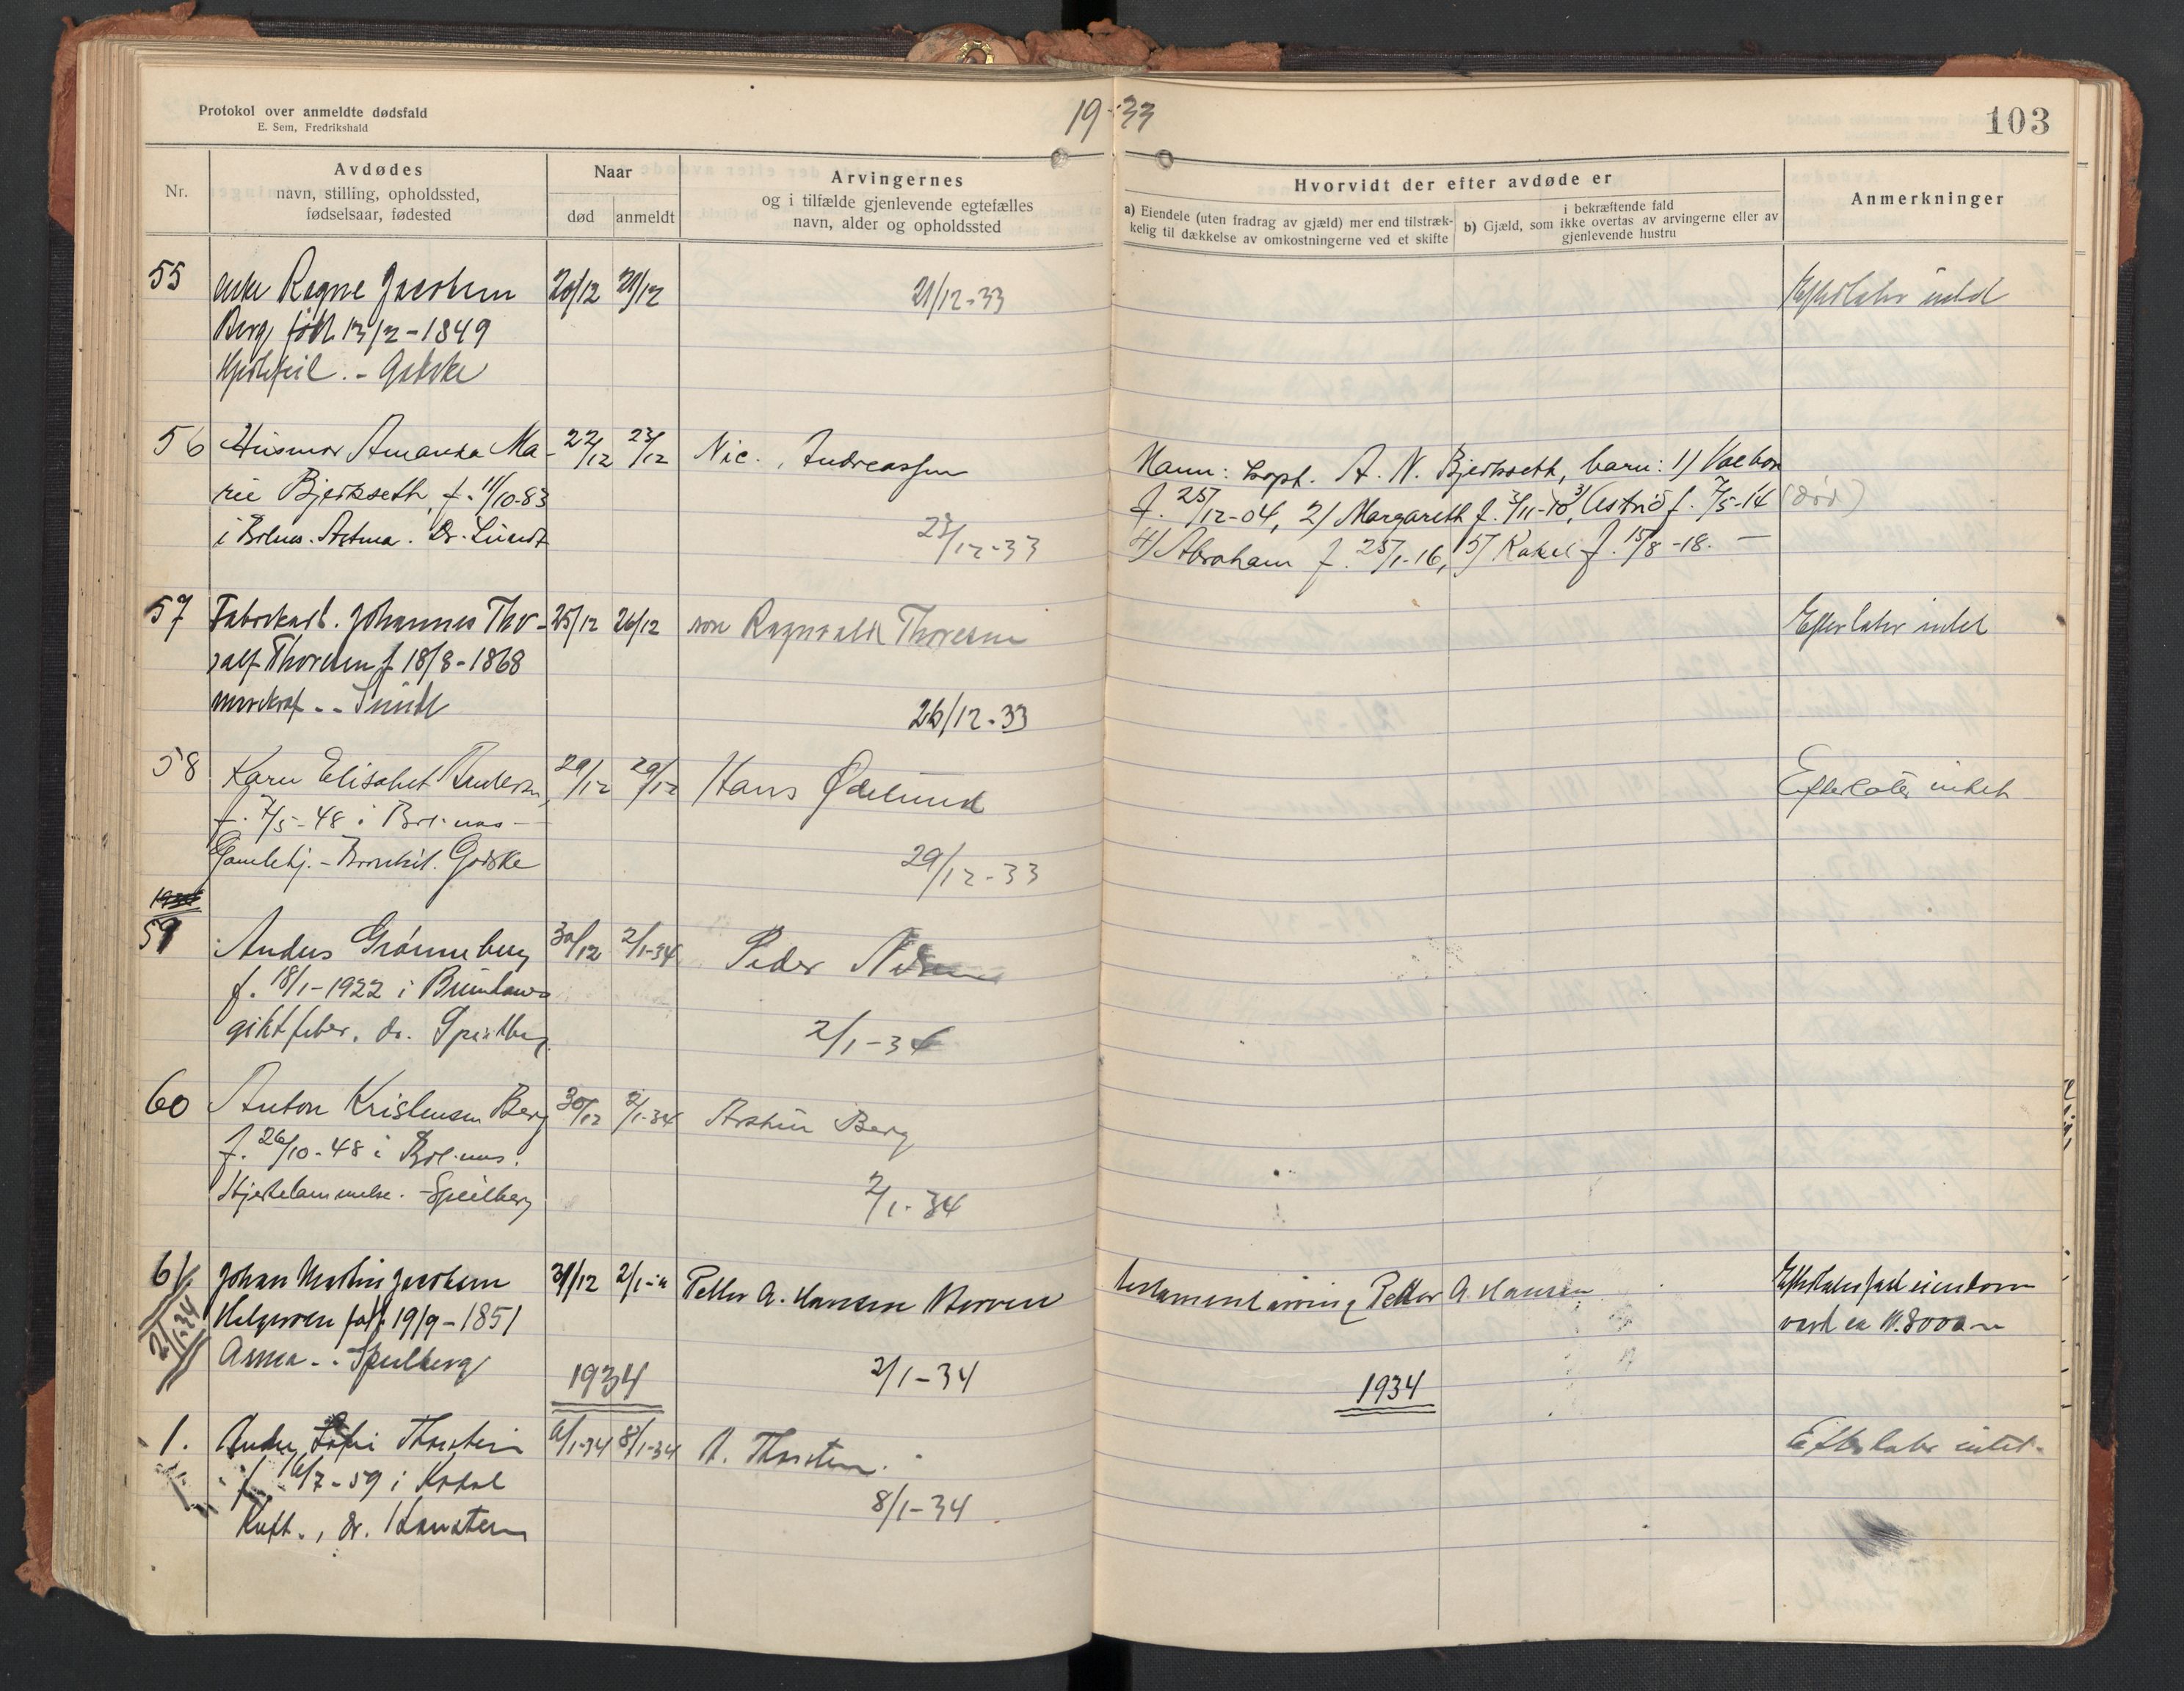 Protokol over anmeldte dødsfald
E. Sem, Fredrikshald
19-33
103
Nr.
Avdødes
navn, stilling, opholdssted,
fødselsaar, fødested
Naar
død anmeldt
Arvingernes
og i tilfælde gjenlevende egtefælles
navn, alder og opholdssted
Hvorvidt der efter avdøde er
a) Eiendele (uten fradrag av gjæld) mer end tilstræk-
kelig til dækkelse av omkostningerne ved et skifte
i bekræftende fald
b) Gjæld, som ikke overtas av arvingerne eller av
gjenlevende hustru
Anmerkninger
55 enke Ragne Jacobsen 20/12 21/12 21/12-33 Efterlater intet
Berg, født 13/2-1849
Hjertefeil.- Gjetske
56 Husmor Amanda Ma- 22/12 23/12 Nic. Andreassen
rie Bjerkseth, f. 11/10-83
i Brlnes. Astma. Dr. Lundt
23/12-33
Mann: kapt. A. N. Bjerkseth, barn: 1)
f. 25/12-04, 2) Margareth f. 3/11-10, 3) Astrid f. 7/5-14 (død)
4) Abraham f. 25/1-16, 5) Rakel f. 15/8-18. —
57 Fabrikarb. Johannes Tho- 25/12 26/12 søn Ragnvald Thoresen Efterlater intet
ralf Thoresen f 18/8-1868
26/12-33
58 Karen Elisabet Andersen, 29/12 29/12 Hans Ødelund Efterlater intet
f. 7/5-48 i Brl.nes-
Gamlehj.- Bronkit. Gjetske
29/12-33
59 Anders Grønneberg 30/12 2/1-34 Peder
f. 18/1-1922 i Brunlanes
giktfeber, dr. Speilberg.
2/1-34
60 Anton Kristensen Berg 30/12 2/1-34 Berg
f. 26/10-48 i Brl.nes.
Hjertelammelse.-Speilberg
2/1-34
61 Johan Martin Jacobsen 31/12 2/1 Petter A. Hansen testamentarving Petter A. Hansen Efterlater fast eiendom
Helgeroen født 19/9-1851 verd ca kr. 8000
2/1-34
Speilberg
2/1-34
1934
1934
1. Sofie Thorstein /1-34 8/1-34 A. Thorsten. Efterlater intet.
f. 16/7-59 i Kodal
8/1-34
Kreft., dr.